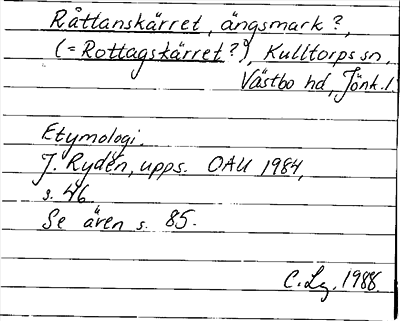 Råttanskärret, ängsmark?,
(= Rottagskärret?), Kulltorps sn,
Västbo hd, Jönk. l.
Etymologi.
J. Rydén, upps. OAU 1984,
s. 46.
Se även s. 85.
C. Lg. 1988.